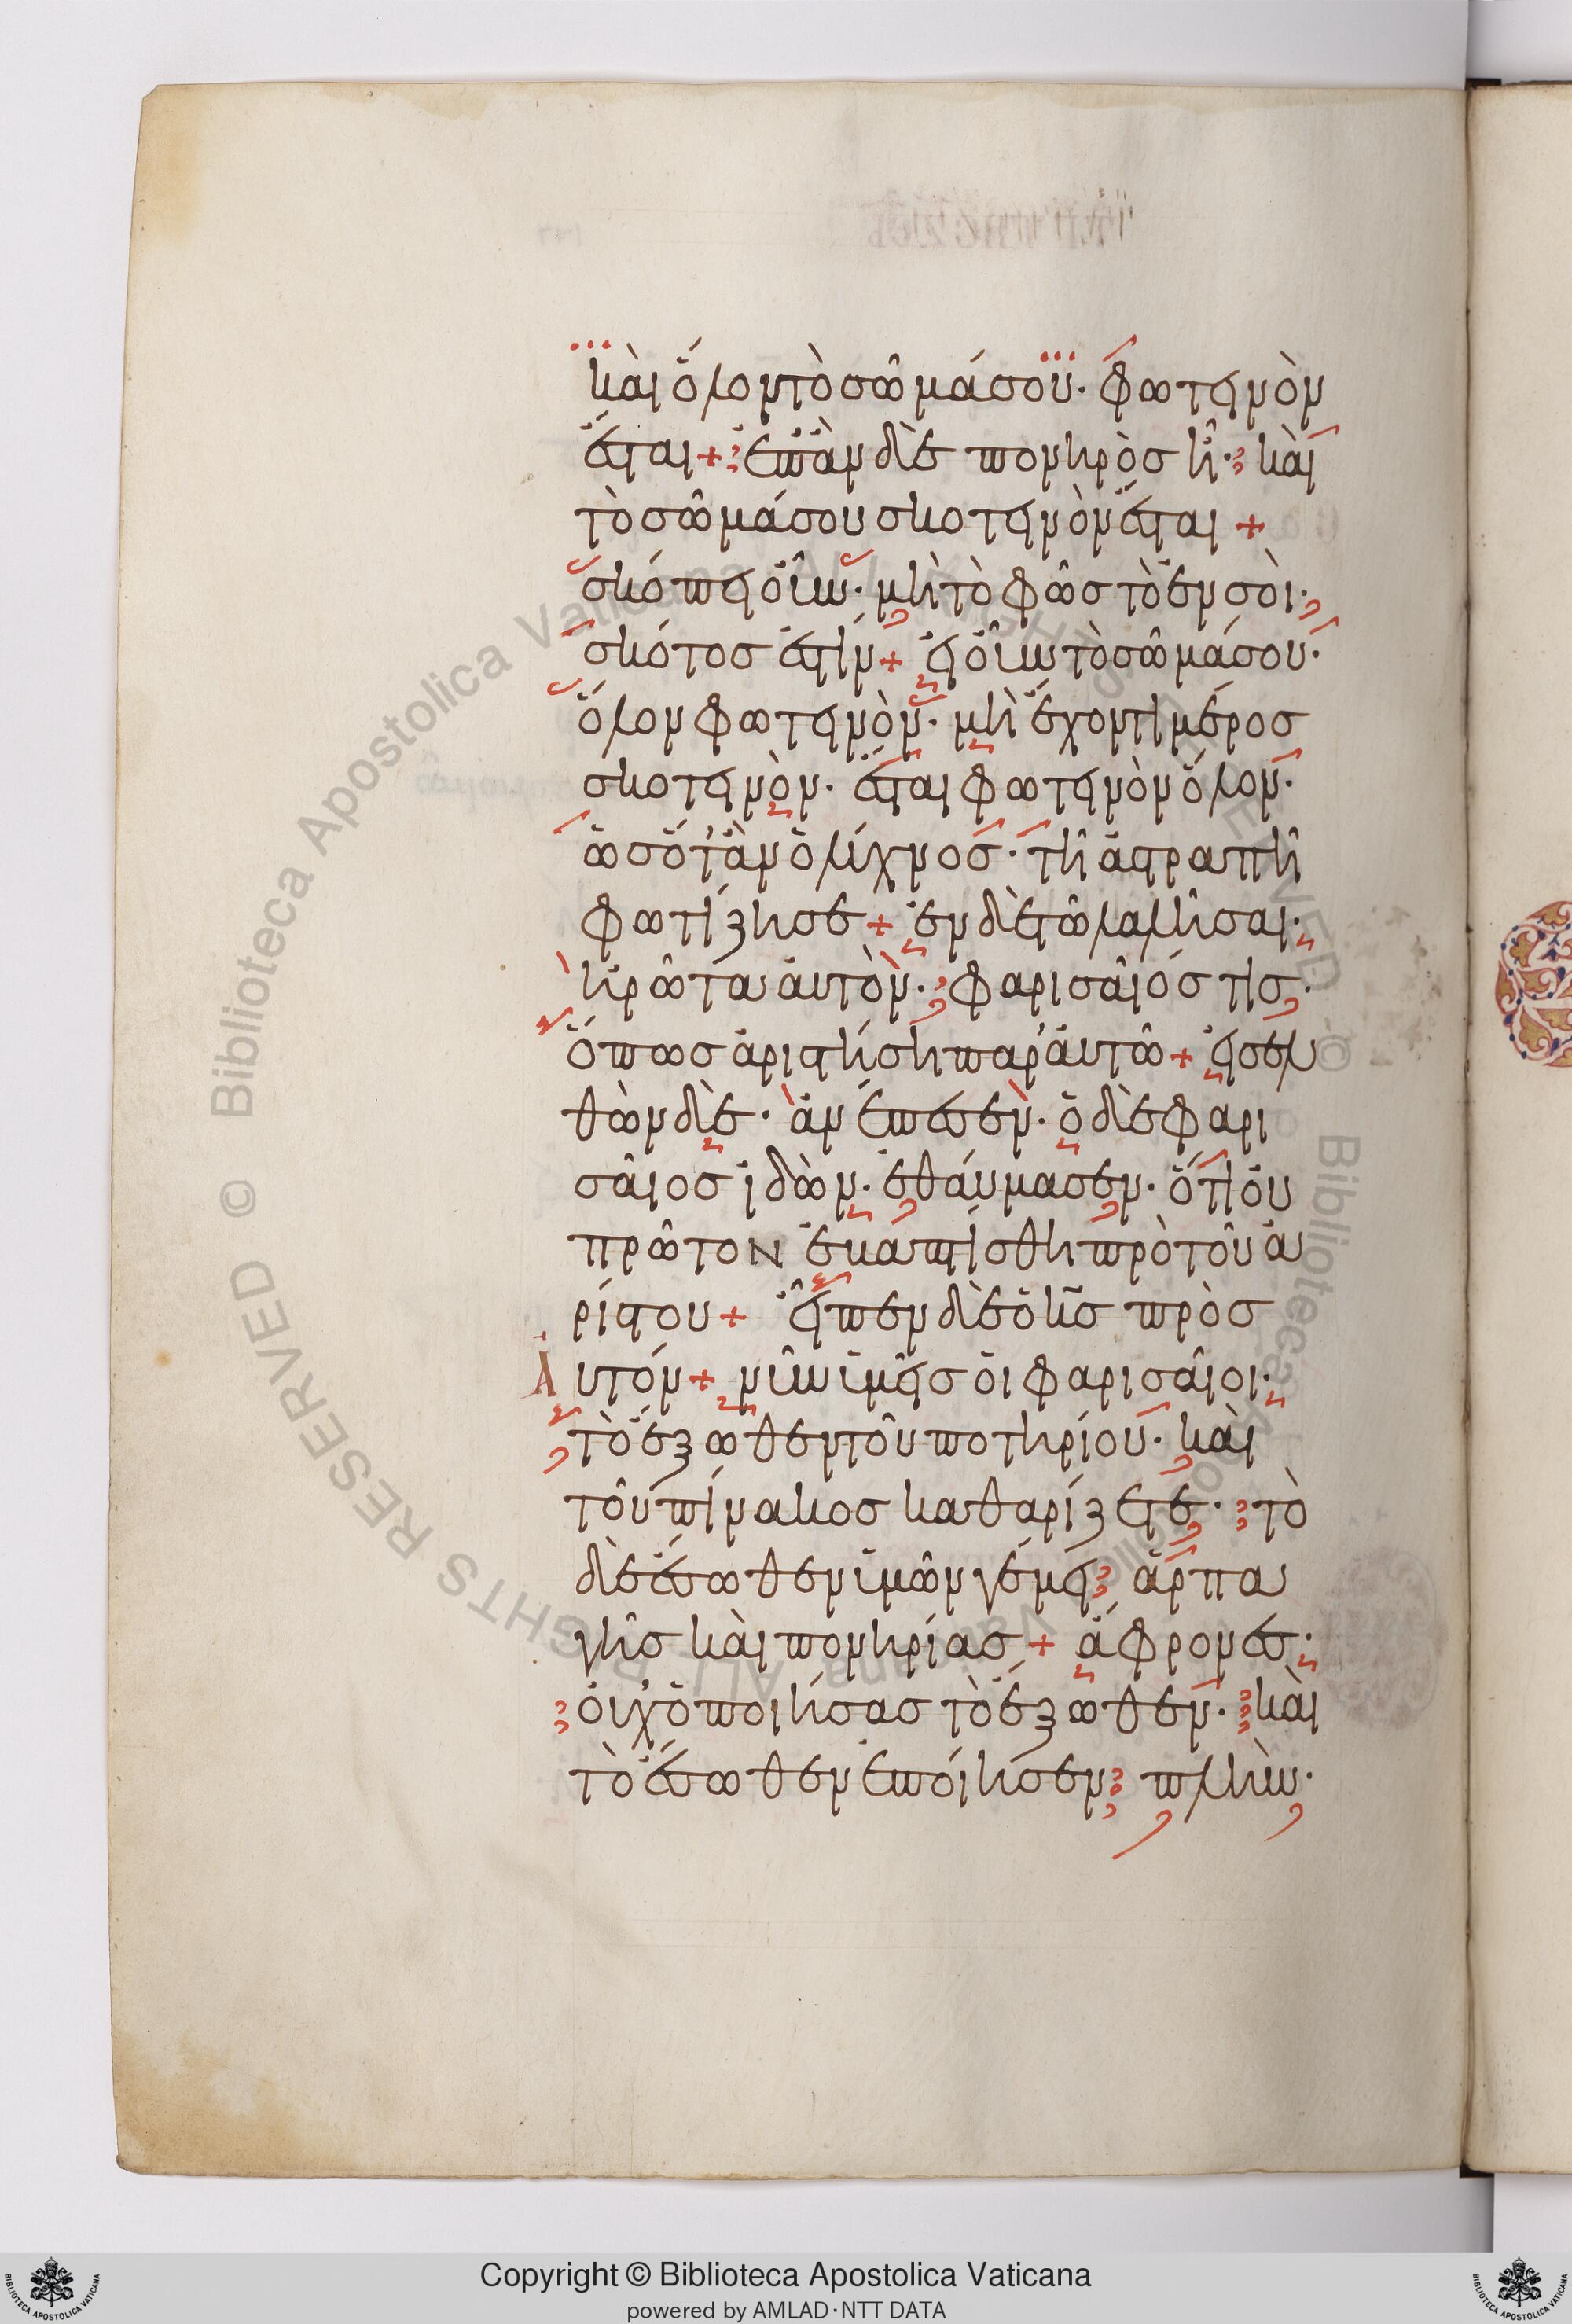 καὶ ὅλον τὸ σῶμά σου· φωτεινὸν
ἔσται + ἐπὰν δὲ πονηρὸσ ἦ· καὶ
τὸ σῶμά σου σκοτεινὸν ἔσται +
σκόπει οὖν· μὴ τὸ φῶσ τὸ ἐν σοὶ·
σκότοσ ἐστίν + εἰ οὖν τὸ σῶμά σου·
ὅλον φωτεινὸν· μὴ ἔχον τι μέροσ
σκοτεινὸν· ἔσται φωτεινὸν ὅλον·
ὡσ ὅτ' ἂν ὁ λύχνοσ· τῆ ἀστραπῆ
φωτίζη σε + ἐν δὲ τῶ λαλῆσαι·
ἠρώτα αὐτὸν· φαρισαῖόσ τισ·
ὅπωσ ἀριστήση παρ' αὐτῶ + εἰσελ
θὼν δὲ· ἀνέπεσεν· ὁ δὲ φαρι
σαῖοσ ἰδὼν· ἐθαύμασεν· ὅτι οὐ
πρῶτον ἐβαπτίσθη πρὸ τοῦ ἀ
ρίστου + εἶπεν δὲ ὁ κσ πρὸσ
Αυτόν + νῦν ὑμεῖσ οἱ φαρισαῖοι·
τὸ ἔξωθεν τοῦ ποτηρίου· καὶ
τοῦ πίνακοσ καθαρίζετε· τὸ
δὲ ἔσωθεν ὑμῶν γέμει ἁρπα
γῆσ καὶ πονηρίασ + ἄφρονεσ·
οὐχ ὁ ποιήσασ τὸ ἔξωθεν· καὶ
τὸ ἔσωθεν ἐποίησεν πλὴν·
Copyright © Biblioteca Apostolica Vaticana
powered by AMLAD·NTT DATA